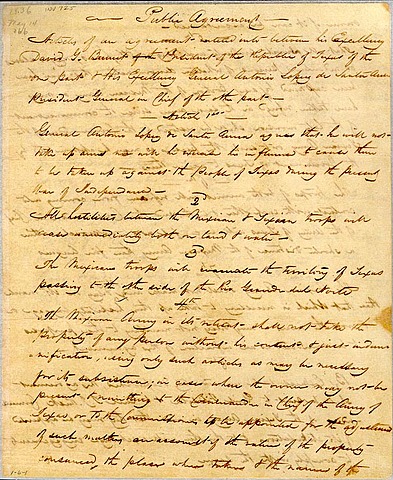 1836
May 14
Public Agreement
Articles of an agreement entered into between his Excellency
David G. Burnet President of the Republic of Texas of the
one part & His Excellency General Antonio Lopez de Santa Anna
President General in Chief of the other part —
Article 1st —
General Antonio Lopez de Santa Anna agrees that he will not
take up arms nor will he exercise his influence to cause them
to be taken up against the People of Texas during the present
War of Independence —
2
All hostilities between the Mexican & Texian troops will
cease immediately both on land & water —
3
The Mexican troops will evacuate the territory of Texas
passing to the other side of the Rio Grande del Norte
4th
The Mexican Army in its retreat shall not take the
property of any person without his consent & just indem
nification, using only such articles as may be necessary
for its subsistence, in cases where the owner may not be
present & remitting to the Commander in Chief of the Army of
Texas or to the Commissioner to be appointed for the adjustment
of such matters an account of the value of the property
consumed, the place where taken, & the name of the